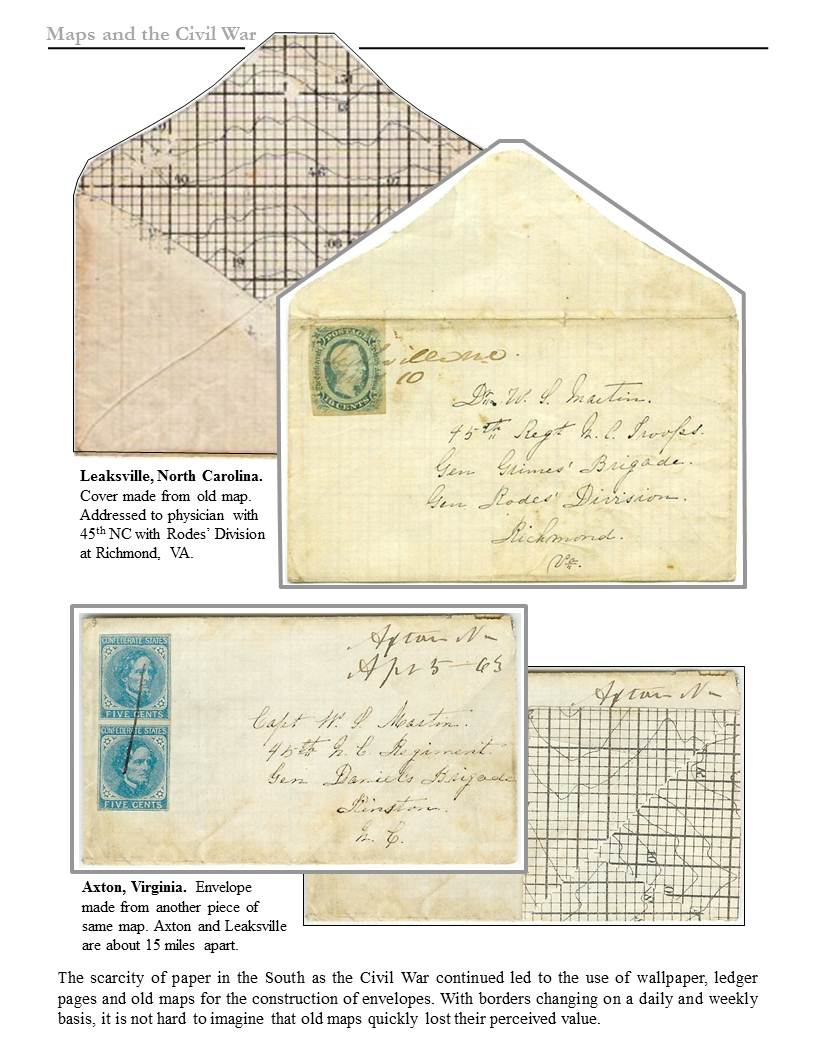 Maps and the Civil War
46
40
07
08
19
POSTAGE
CENTS
ville N.C.
10
Dr. W. S. Martin.
45th Regt N. C. Troops.
Gen Grimes' Brigade.
Gen Rodes' Division.
Richmond.
Va.
Leaksville, North Carolina.
Cover made from old map.
Addressed to physician with
45th NC with Rodes' Division
at Richmond, VA.
CONFEDERATE STATES
FIVE CENTS
CONFEDERATE STATES
FIVE CENTS
Axton Va
Apr 5 - 63
Capt W. S. Martin.
45th N. C. Regiment
Gen Daniels Brigade
Kinston.
N. C.
Axton Va
10
Axton, Virginia. Envelope
made from another piece of
same map. Axton and Leaksville
are about 15 miles apart.
The scarcity of paper in the South as the Civil War continued led to the use of wallpaper, ledger
pages and old maps for the construction of envelopes. With borders changing on a daily and weekly
basis, it is not hard to imagine that old maps quickly lost their perceived value.